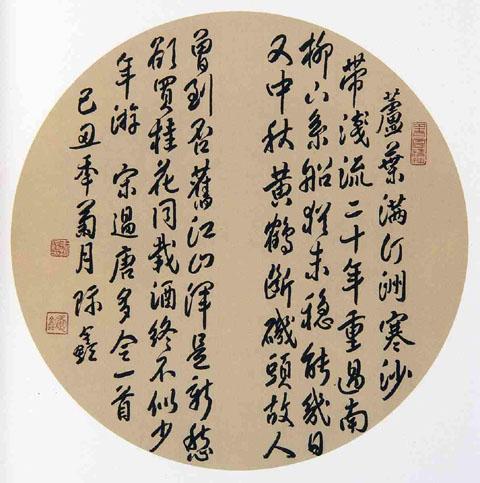 蘆葉满汀洲寒沙
带淺流二十年重過南
柳下系船犹未穩能幾日
又中秋黄鶴断磯頭故人
曾到否舊江山渾是新愁
欲買桂花同載酒終不似少
年游 宋過唐多令一首
己丑秊菊月陈鑫